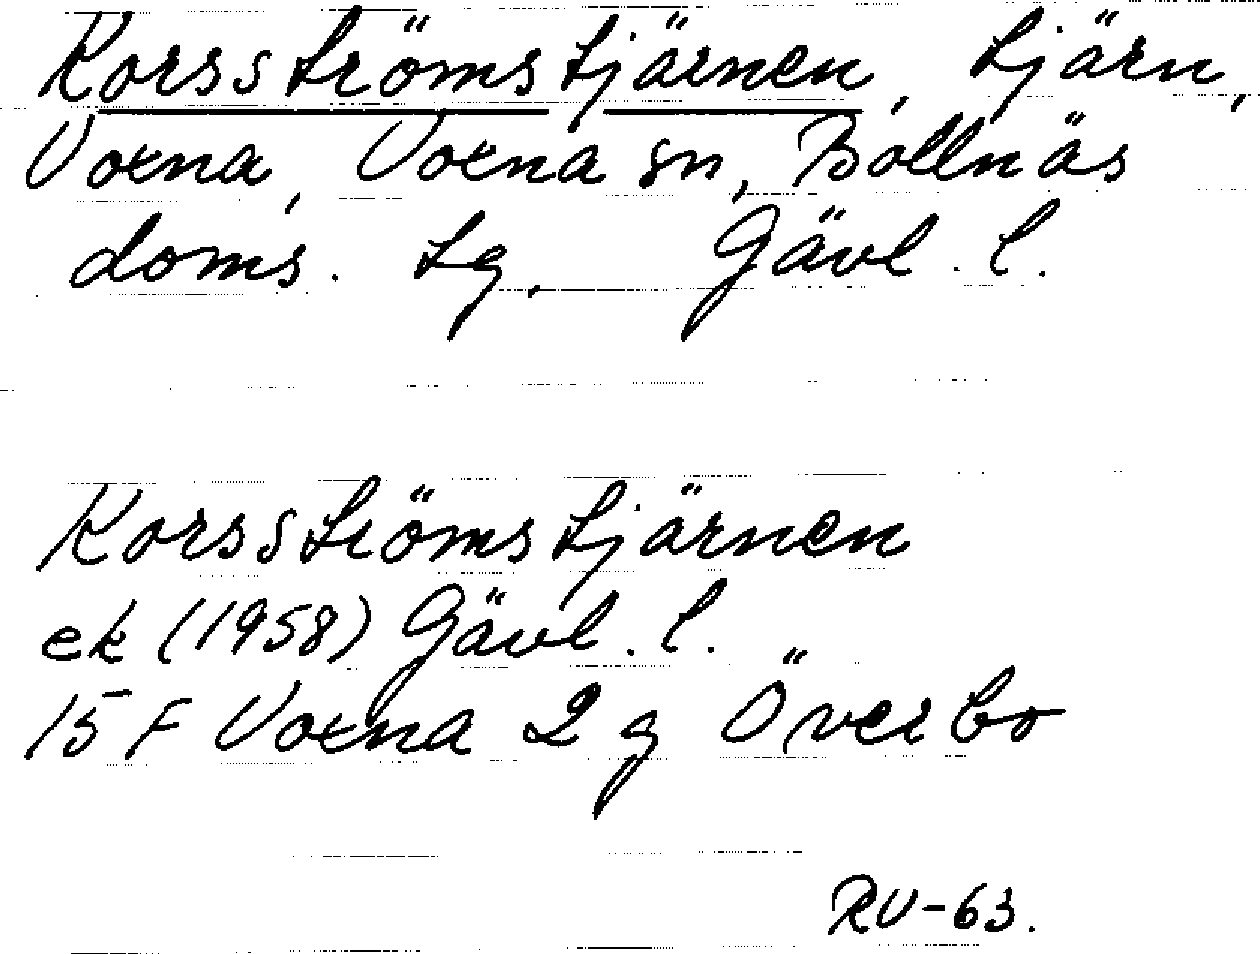 Korsströmstjärnen, tjärn,
Voxna, Voxna sn, Bollnäs
doms. tg. Gävl. l.
Korsströmstjärnen
ek (1958) Gävl. l.
15 F Voxna 2 g Överbo
RV-63.